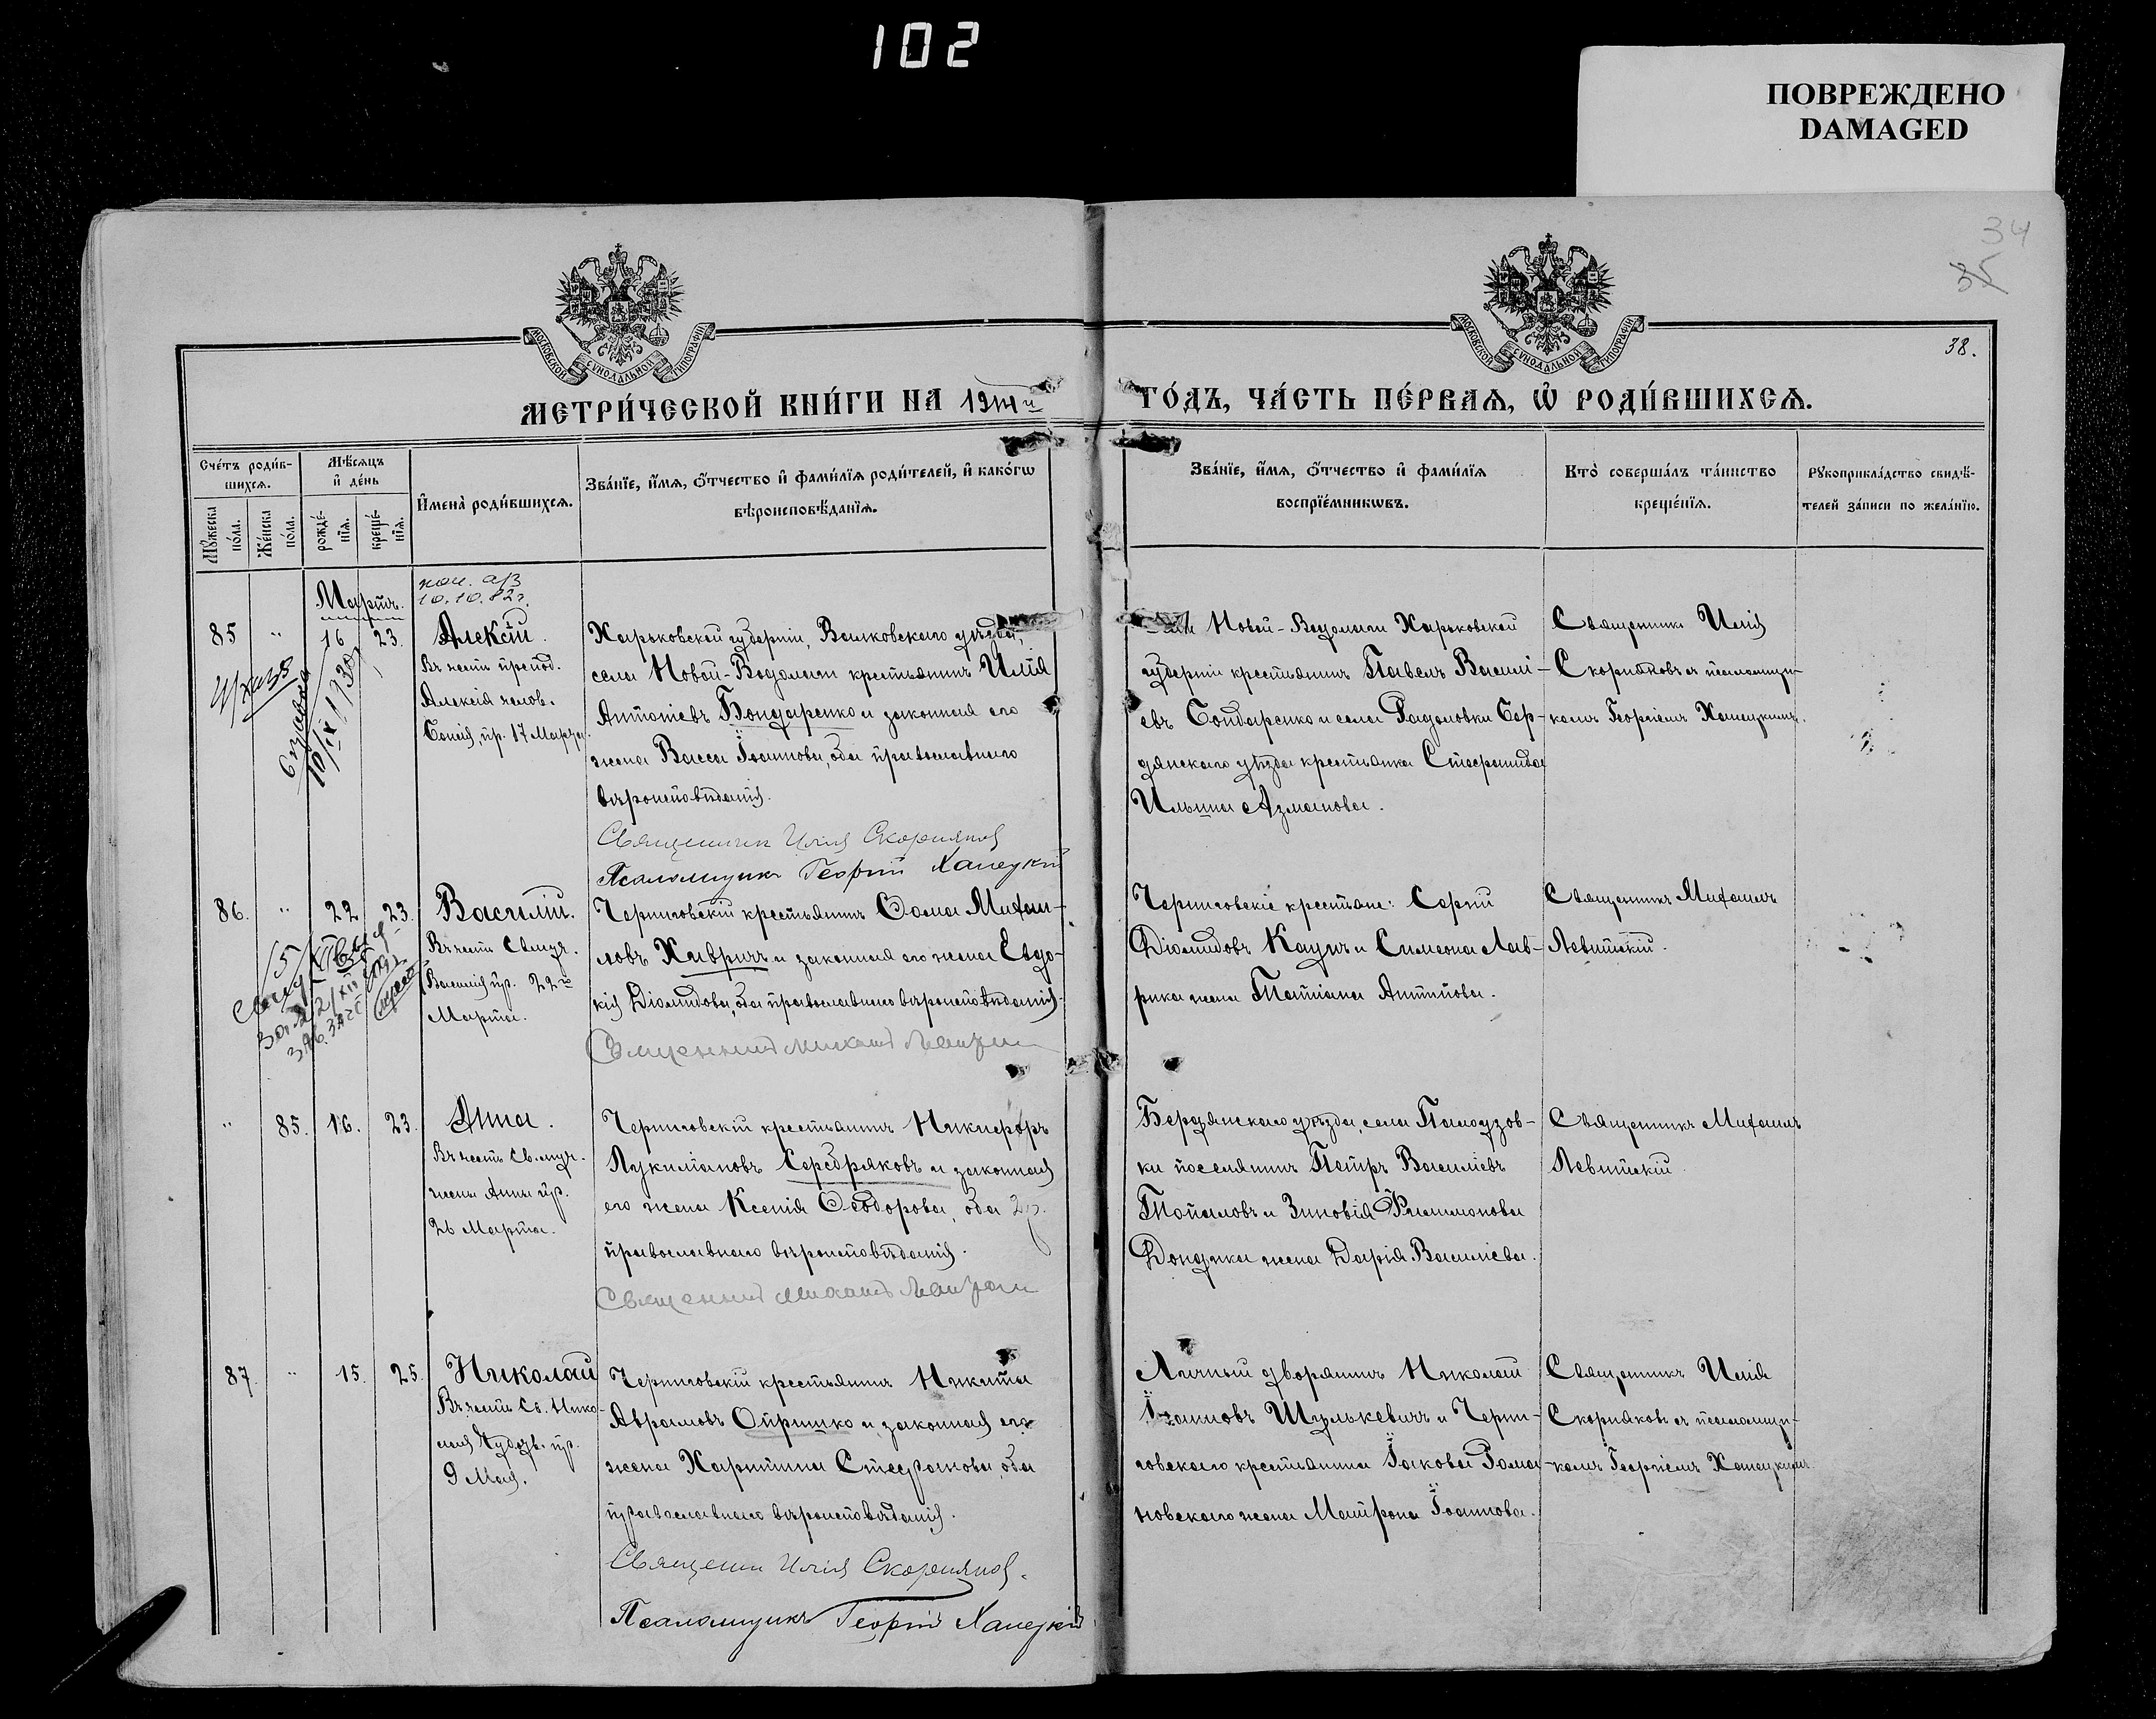 102
ПОВРЕЖДЕНО
DAMAGED
34
35
38.
МОСКОВСКОЙ СУНОДАЛЬНОЙ ТИПОГРАФІИ
МОСКОВСКОЙ СУНОДАЛЬНОЙ ТИПОГРАФІИ
МЕТРИ́ЧЕСКОЙ КНИ́ГИ НА
ГО́ДЪ, ЧА́СТЬ ПЕ́РВАѦ, Ѿ РОДИ́ВШИХСѦ.
Сче́тъ роди́в-
шихсѧ.
Мѣ́сѧцъ
и҆ де́нь
Мꙋ́жеска по́ла.
Же́нска по́ла.
рожде́-нїѧ.
креще́-нїѧ.
И҆мена̀ роди́вшихсѧ.
Зва́нїе, и҆́мѧ, ѻ҆́тчество и҆ фами́лїѧ роди́телей, и҆ како́гѡ
вѣроисповѣ́данїѧ.
Зва́нїе, и҆́мѧ, ѻ҆́тчество и҆ фами́лїѧ
воспрїе́мникѡвъ.
Кто̀ соверша́лъ та́инство
креще́нїѧ.
Рꙋкоприкла́дство свидѣ́-
телей за́писи по жела́нїю.
Мартъ.
10.10.82г.
85 " 16 23. Алексій.
Въ честь препод.
Алексія челов.
Божія, пр. 17 Марта.
Харьковской губерніи, Валковскаго уѣзда,
села Новой-Водолаги крестьянинъ Илія
Антоніевъ Бондаренко и законная его
жена Васса Іоаннова, оба православнаго
вѣроисповѣданія.
Священникъ Илія Скорняковъ
Псаломщикъ Георгій Ханецкій
Новой-Водолаги Харьковской
губерніи крестьянинъ Павелъ Василі-
евъ Бондаренко и села Радоловки Бер-
дянскаго уѣзда крестьянка Стефанида
Ильина Азманова.
Священникъ Илія
Скорняковъ съ псаломщи-
комъ Георгіемъ Ханецкимъ.
86. " 22 23. Василій.
Въ честь Св. муч.
Василія пр. 22го
Марта.
Черниговскій крестьянинъ Ѳома Михаи-
ловъ Хавричъ и законная его жена Евдо-
кія Діомидова, оба православнаго вѣроисповѣданія.
Священникъ Михаилъ
Черниговскіе крестьяне: Сергій
Діомидовъ Кауръ и Симеона Лав-
рика жена Татіана Антипова.
Священникъ Михаилъ
Левитскій.
" 85. 16. 23. Анна.
Въ честь Св. муч.
жены Анны пр.
26 Марта.
Черниговскій крестьянинъ Никифоръ
Лукиліановъ Серебряковъ и законная
его жена Ксенія Ѳеодорова, оба
православнаго вѣроисповѣданія.
Священникъ Михаилъ
Бердянскаго уѣзда, села Палаузов-
ки поселянинъ Петръ Василіевъ
Топаловъ и Зиновія Филимонова
Дондука жена Дарія Василіева.
Священникъ Михаилъ
Левитскій
87. " 15. 25. Николай
Въ честь Св. Нико-
лая Чудотв. пр.
9 Мая.
Черниговскій крестьянинъ Никита
Аврамовъ Опришко и законная его
жена Харитина Стефанова, оба
православнаго вѣроисповѣданія.
Священникъ Илія Скорняковъ.
Псаломщикъ Георгій Ханецкій
Личный дворянинъ Николай
Іоанновъ Шулькевичъ и Черни-
говскаго крестьянина Іакова Рома-
новскаго жена Матрона Іоаннова.
Священникъ Илія
Скорняковъ съ псаломщи-
комъ Георгіемъ Ханецкимъ.